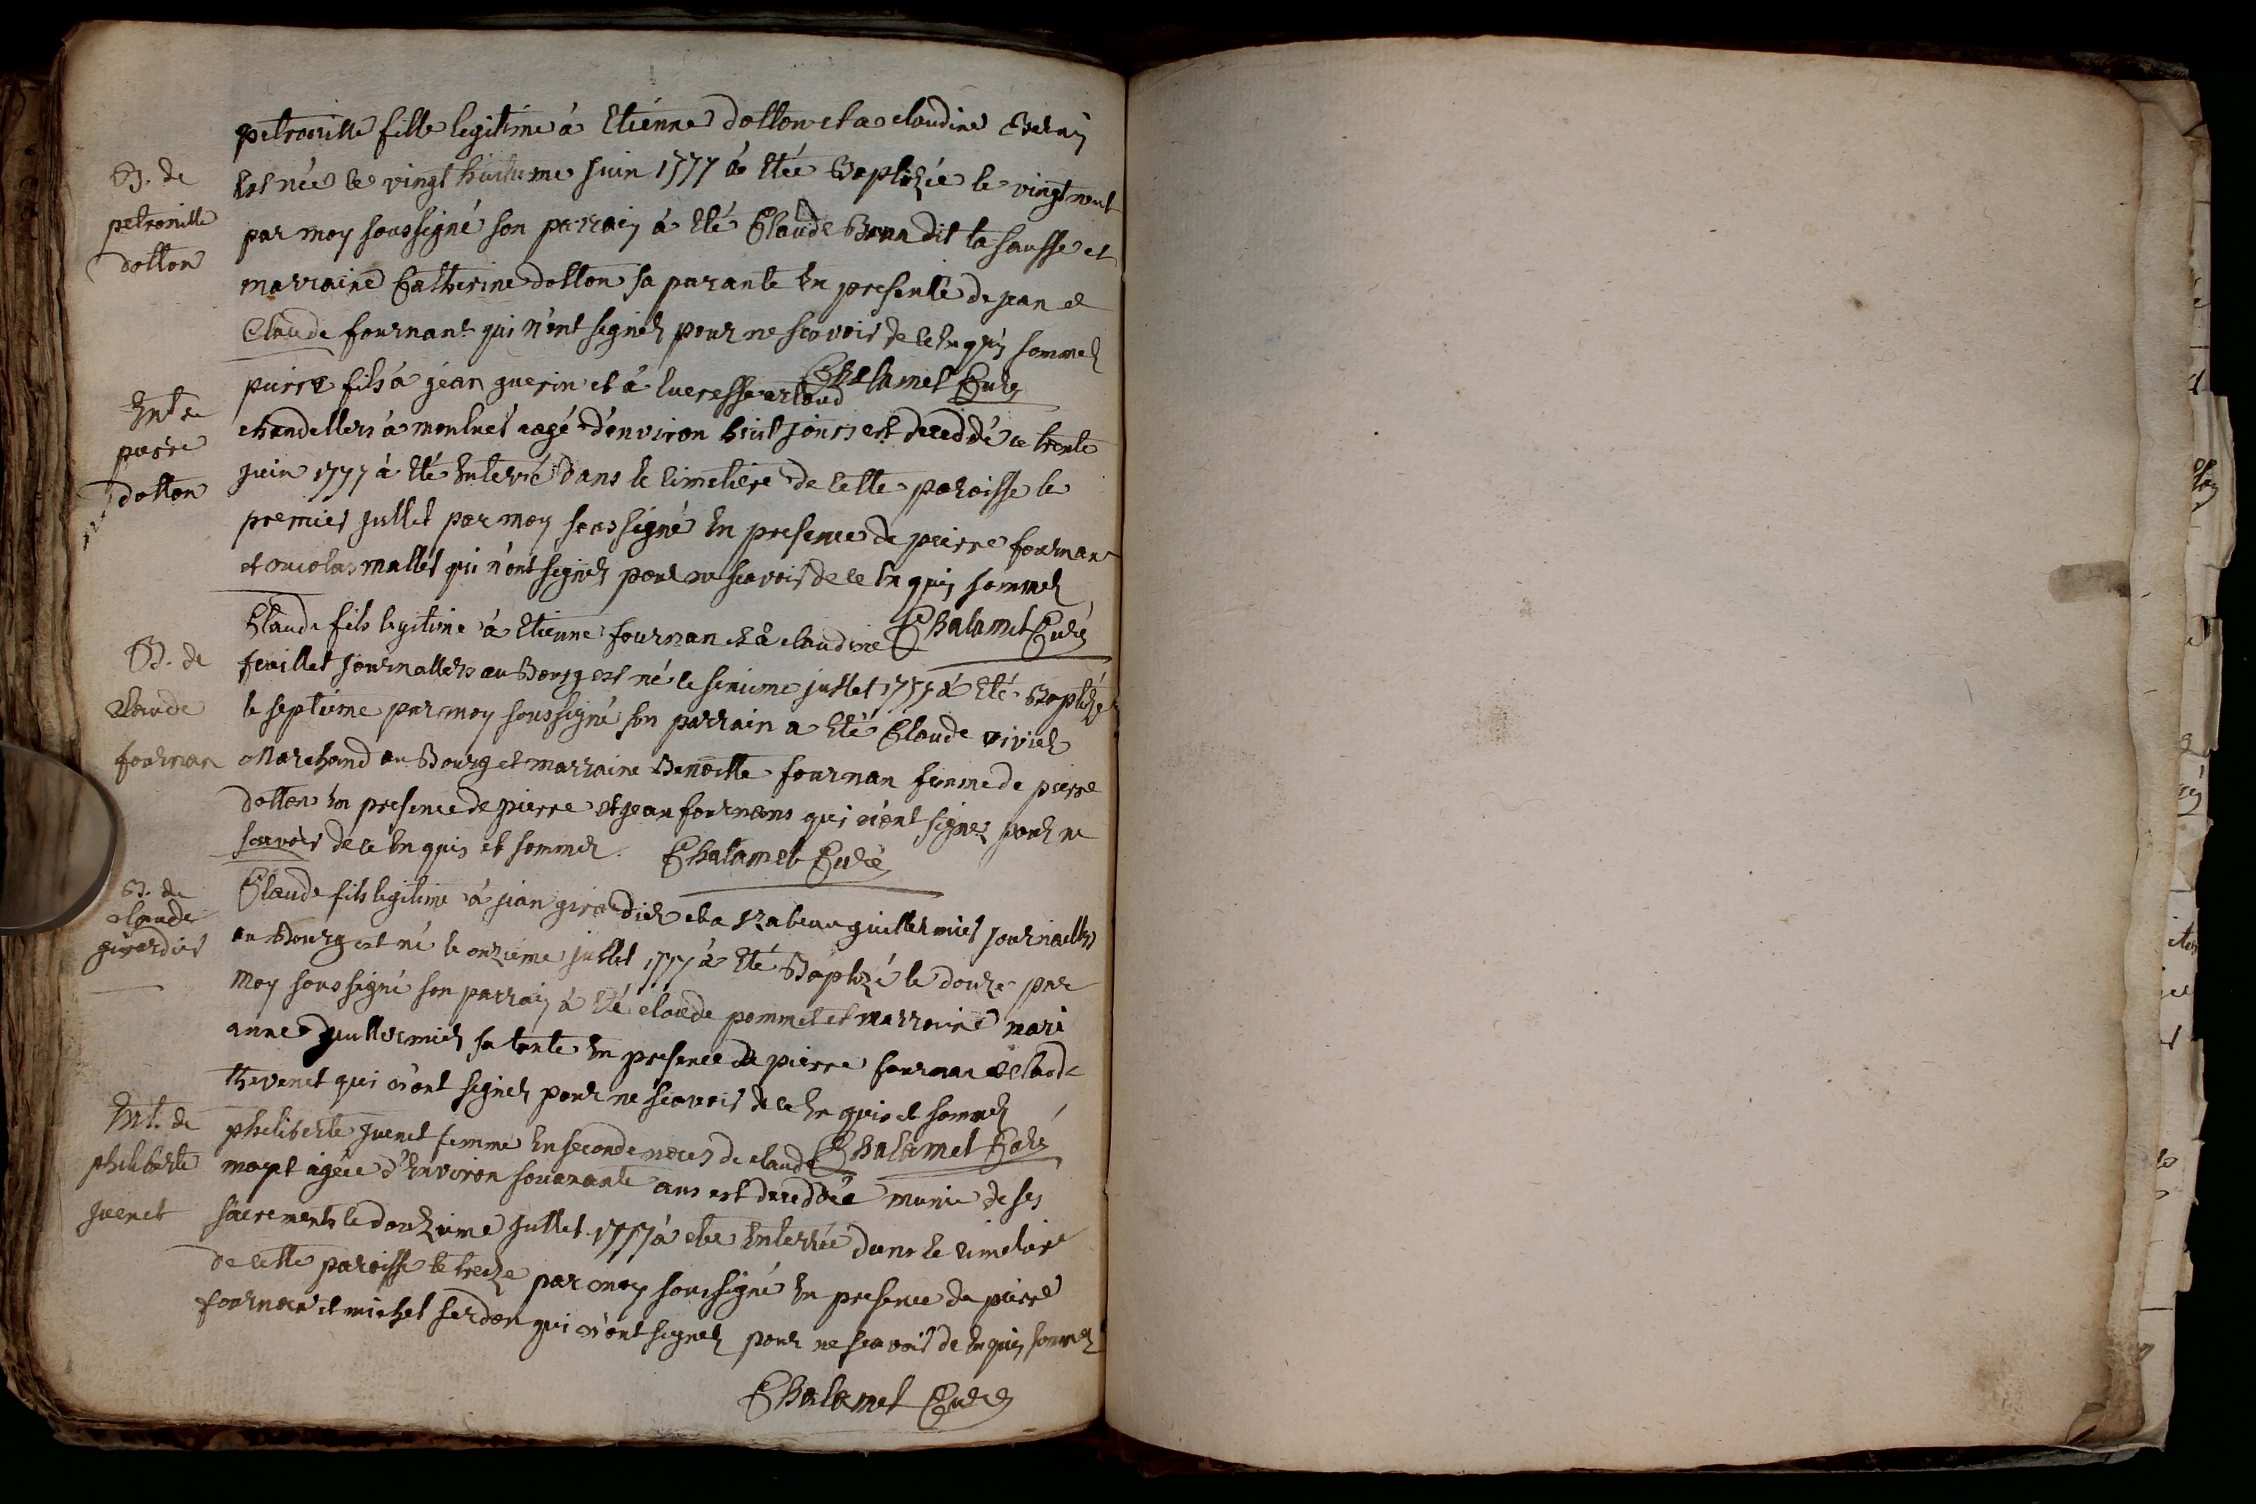 B. de
petronille
dotton
petronille fille legitime à Etienne dotton et a claudine
Est née le vingt huitieme juin 1777 à Eté Baptizée le vingt neuf
par moy soussigné son parrain à Eté Claude dit la sausse et
marraine Catherine dotton sa parante En presente de jean et
Claude fournant qui n'ont signéz pour ne scavoir de ce Enquis sommez
Chalamet Curé
Ent de
pierre
dotton
pierre fils à jean guerin et à lucresse artaud
chandelliers à montuel aagé d'environ huit jours est deceddé ce trente
juin 1777 à Eté Enterré Dans le cimetiere de cette paroisse le
premier jullet par moy soussigné En presence de pierre fournan
et nicolas mallet qui n'ont signéz pour ne scavoir de ce Enquis sommez
Chalamet Curé
B. de
Claude
fournan
Claude fils legitime à Etienne fournan et à claudine
feuillet journalliers au Bourg est né le sixieme jullet 1777 à Eté Baptizé
le septieme par moy soussigné son parrain a Eté Claude vivier
Marchand au Bourg et marraine Benoitte fournan femme de pierre
dotton En presence de pierre et jean fournans qui n'ont signez pour ne
scavoir de ce Enquis et sommez Chalamet Curé
B. de
claude
girerdier
Claude fils legitime à jean girardier et a Izabeau guillermier journallier
au Bourg est né le onzieme jullet 1777 à Eté Baptizé le douze par
moy soussigné son parrain à Eté claude pommet et marraine mari
anne guillermier sa tante En presence de pierre fournan et claude
thevenet qui n'ont signéz pour ne scavoir de ce Enquis et sommez
Chalamet Curé
Ent. de
philiberte
juenet
pheliberte juenet femme En seconde noces de claude
moyet agée d'Environ souaxante ans est deceddée munie de ses
sacrements le douzieme jullet 1777 à eté Enterrée dans le cimetiere
de cette paroisse le treize par moy soussigné En presence de pierre
fournan et michel serdon qui n'ont signéz pour ne scavoir de Enquis sommez
Chalamet Curé